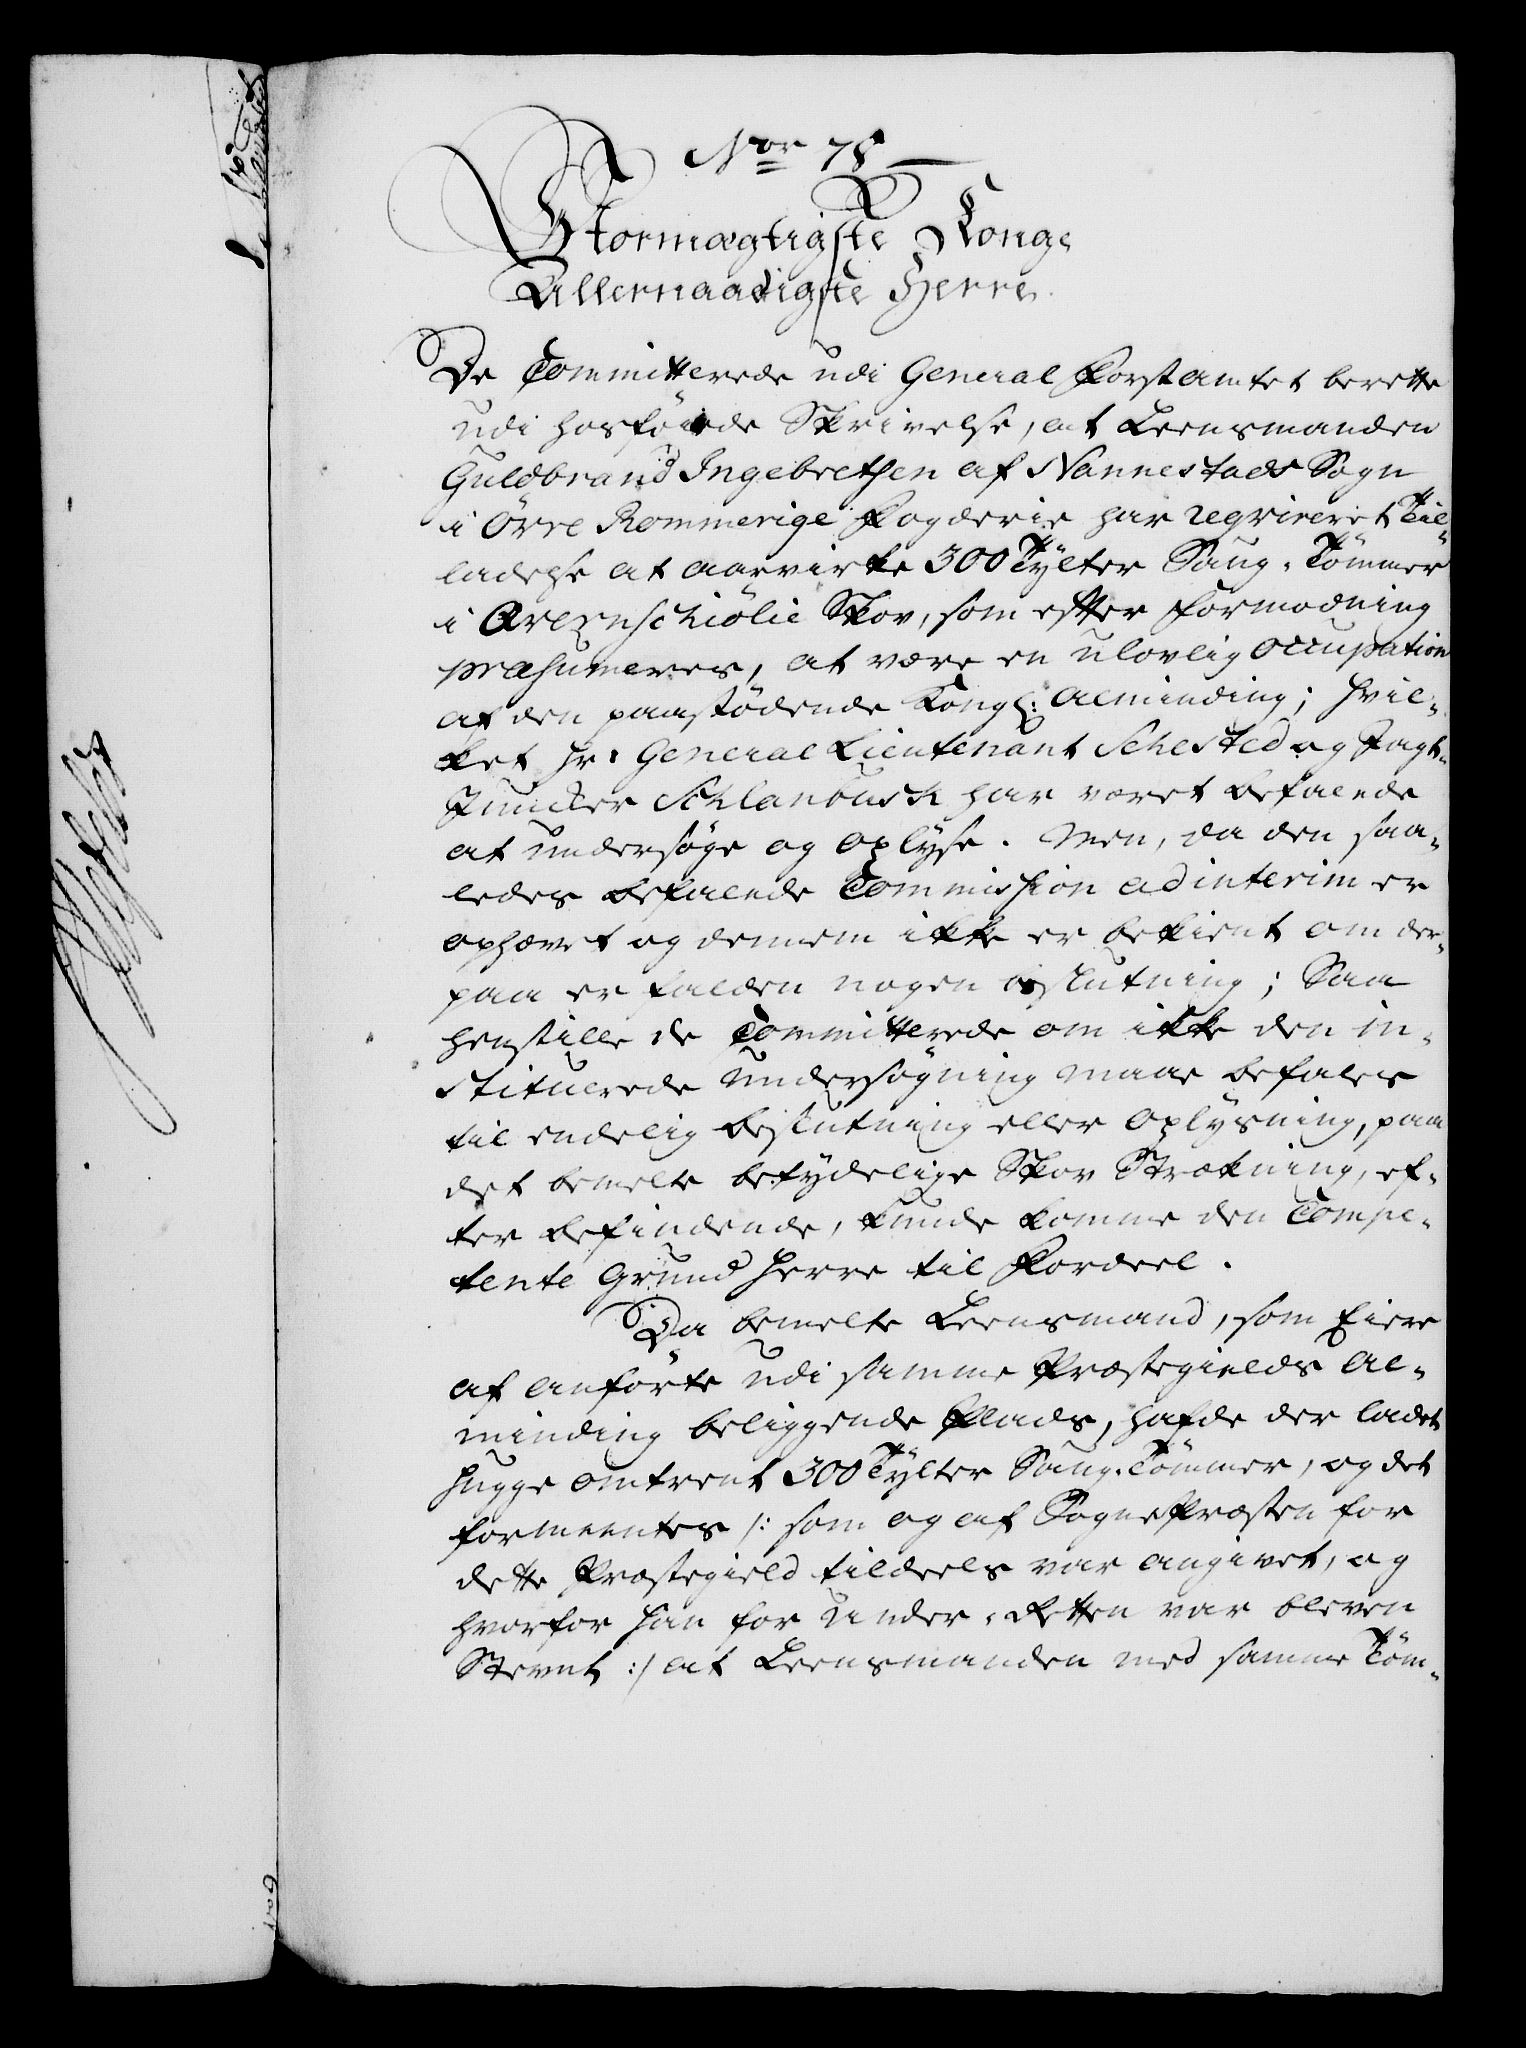 Nor 78
Stormægtigste Konge
Allernaadigste Herre
De Committerede udi General Forstamtet berette
udi hosføiede Skrivelse, at Leensmanden
Guldbrand Ingebrethsen af Nannestads Sogn
i Øvre Rommerige Fogderie har reqvireret Til-
ladelse at aarvirke 300 Tÿlter Saug-Tømmer
i Skov, som efter Formodning
præsumeres, at være en ulovlig occupation
af den paastødende Kongl: Alminding; hvil-
ket Hr: General Lieutenant Schested og Jagt-
Juncker Schlanbusch har været befalede
at undersøge og oplyse. Men, da den saa-
ledes befalede Commission ad interim er
ophævet og dennem ikke er bekient om der-
paa er falden nogen Slutning; Saa
henstille de Committerede om ikke den in-
stituerede Undersøgning maae befales
til endelig beslutning eller Oplysning, paa
det bemelte betydelige Skov Strækning, ef-
ter befindende, kunde komme den Compe-
tente Grund Herre til Fordeel.
Da bemelte Leensmand, som Eiere
af anførte udi samme Præstegields Al-
minding beliggende Plads, hafde der ladet
hugge omtrent 300 Tÿlter Saug-Tømmer, og det
formeentes /: som og af Sogne Præsten for
dette Præstegield tildeels var angivet, og
hvorfor han for Under-Retten var bleven
Stevnt :/ at Leensmanden med samme Tøm-